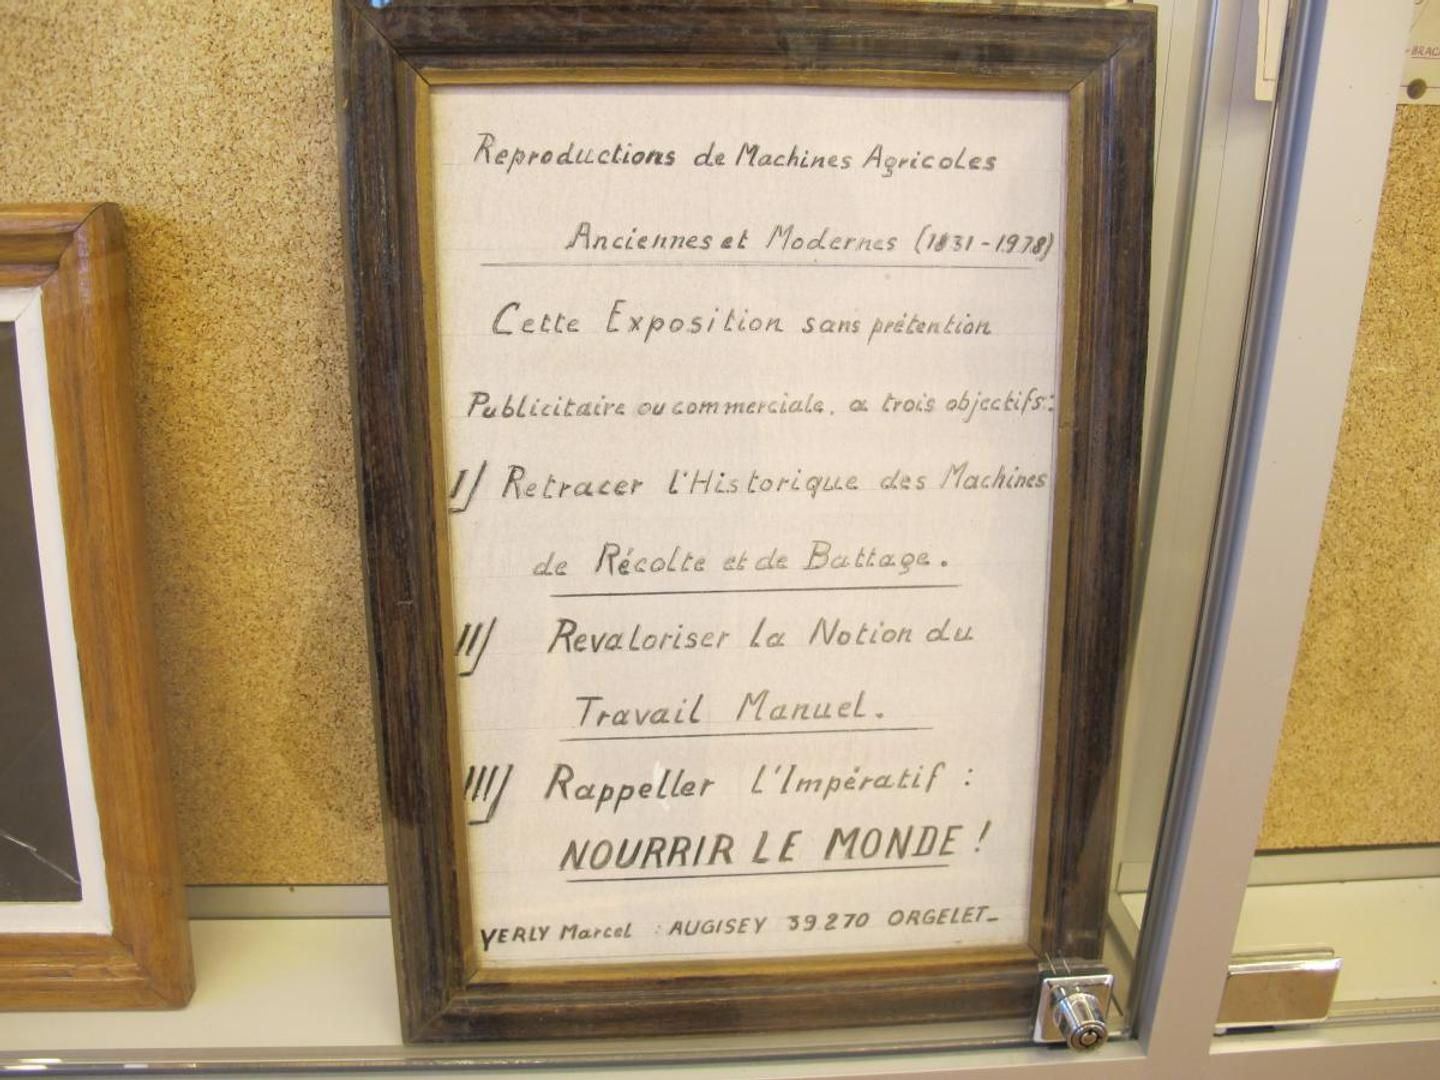 Reproductions de Machines Agricoles
Anciennes et Modernes (1831-1978)
Cette Exposition sans prétention
Publicitaire ou commerciale, a trois objectifs:
I/ Retracer l'Historique des Machines
de Récolte et de Battage.
II/ Revaloriser la Notion du
Travail Manuel.
III/ Rappeller l'Impératif :
NOURRIR LE MONDE !
VERLY Marcel : AUGISEY 39270 ORGELET_